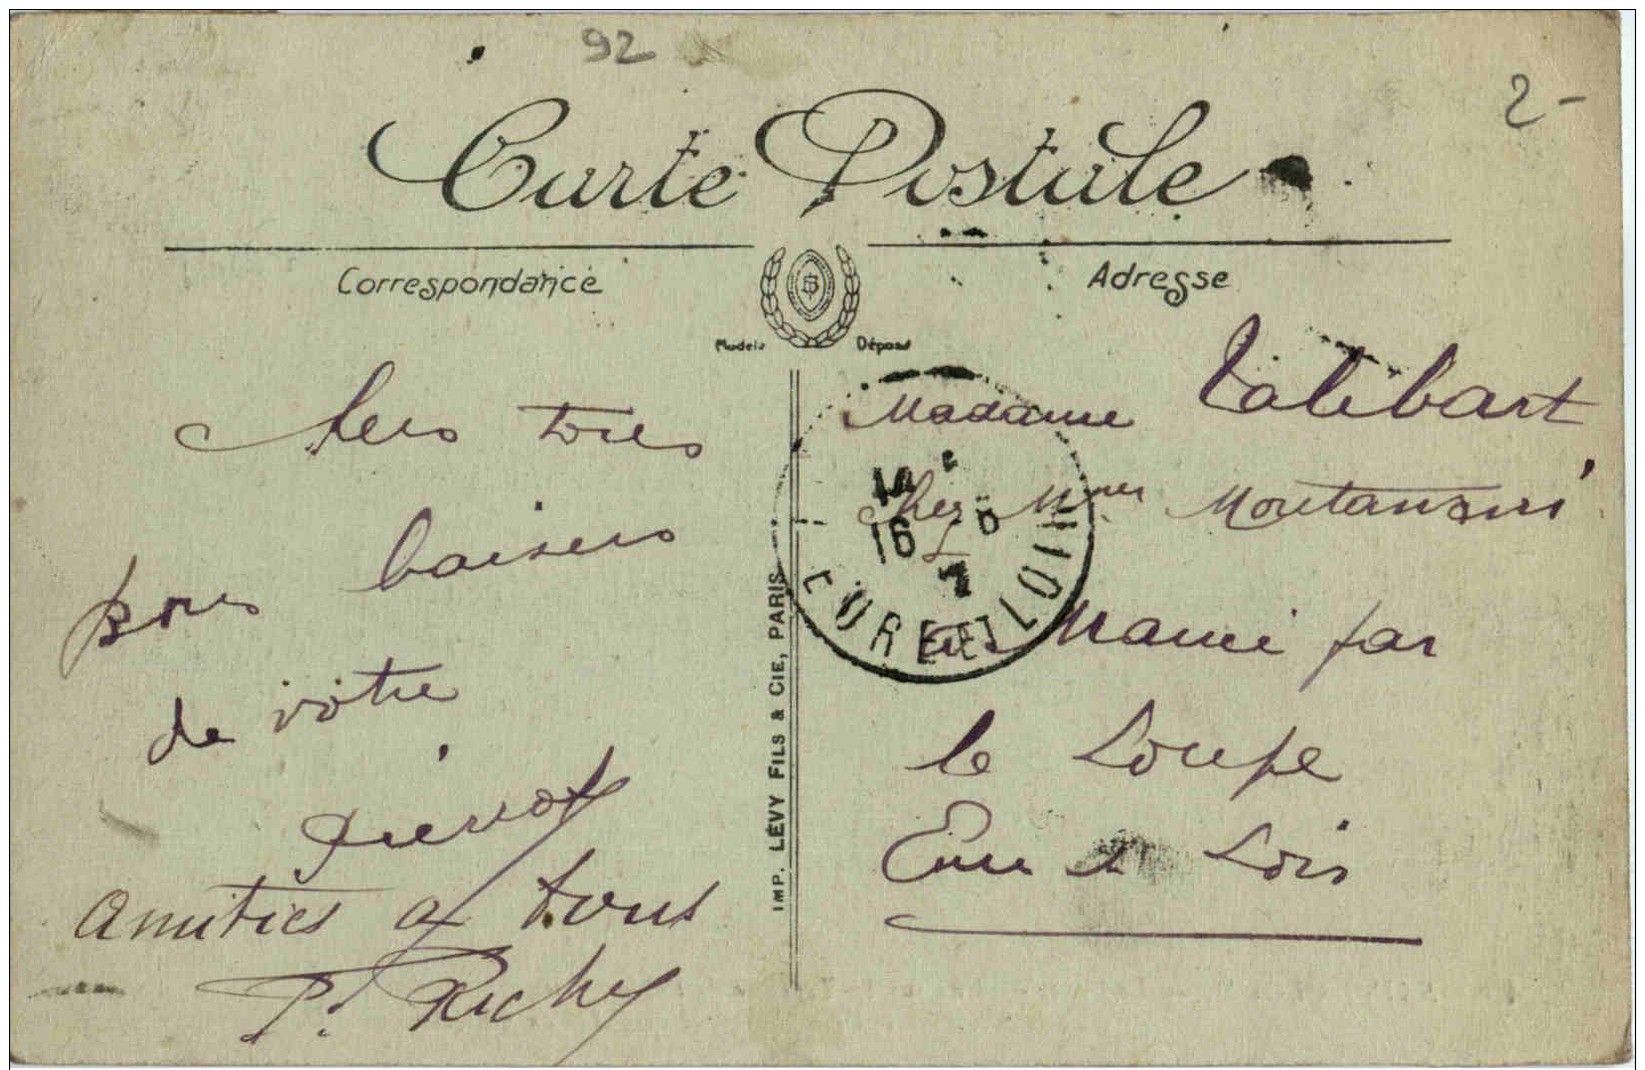 92
2-
Carte Postale
Correspondance
Adresse
Modèle Déposé
Mes très
bons baisers
de votre
Pierrot
Amitiés a tous
P. Richy
IMP. LÉVY FILS & CIE, PARIS
Madame Talibart
chez Mmes
par
la Loupe
Eure et Loir
16
EURE ET LOIR